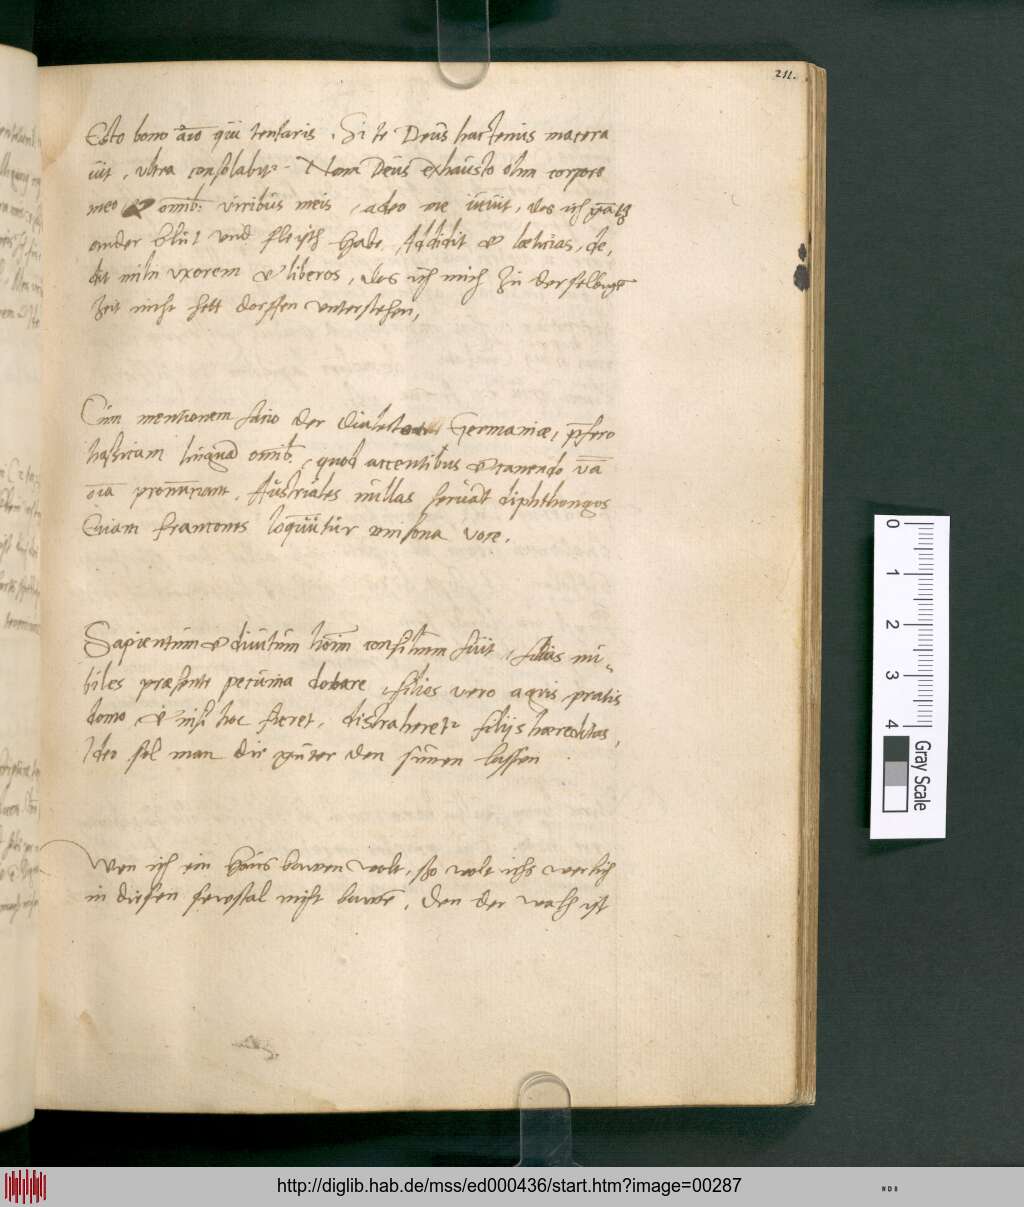 211.
Esto bono aīo qui tentaris. Si te Deus hactenus macera
uit, ultra consolabit᷑. Nam Deus exhausto olim corpore
meo & omīb: viribus meis, adeo me iuuit, das ich gātz
ander blut und fleisch habe, Addidit & lætitias, de,
dit mihi uxorem & liberos, das ich mich zu derselbige
zeit nicht hett dorffen unterstehen,
Cum mentionem facio der Germaniæ, p̄fero
linguā omib. quod accentibus & canendo
oīa pronunciant. Australes nullas seruāt diphthongos
Francones loquūtur unisona voce.
Sapientum & diuitum hoīm consilium fuit, filias nu-
biles præsente pecunia dotare, filios vero agris pratis
domo, & nisi hoc fieret, distraheret᷑ filijs hæreditas,
Ideo sol man die guter den sūnen lassen
Wen ich ein haus bawen wolt, so wolt ichs werlich
in diesen sewstal nicht bawē, den der wasch ist
0 1 2 3 4
Gray Scale
http://diglib.hab.de/mss/ed000436/start.htm?image=00287